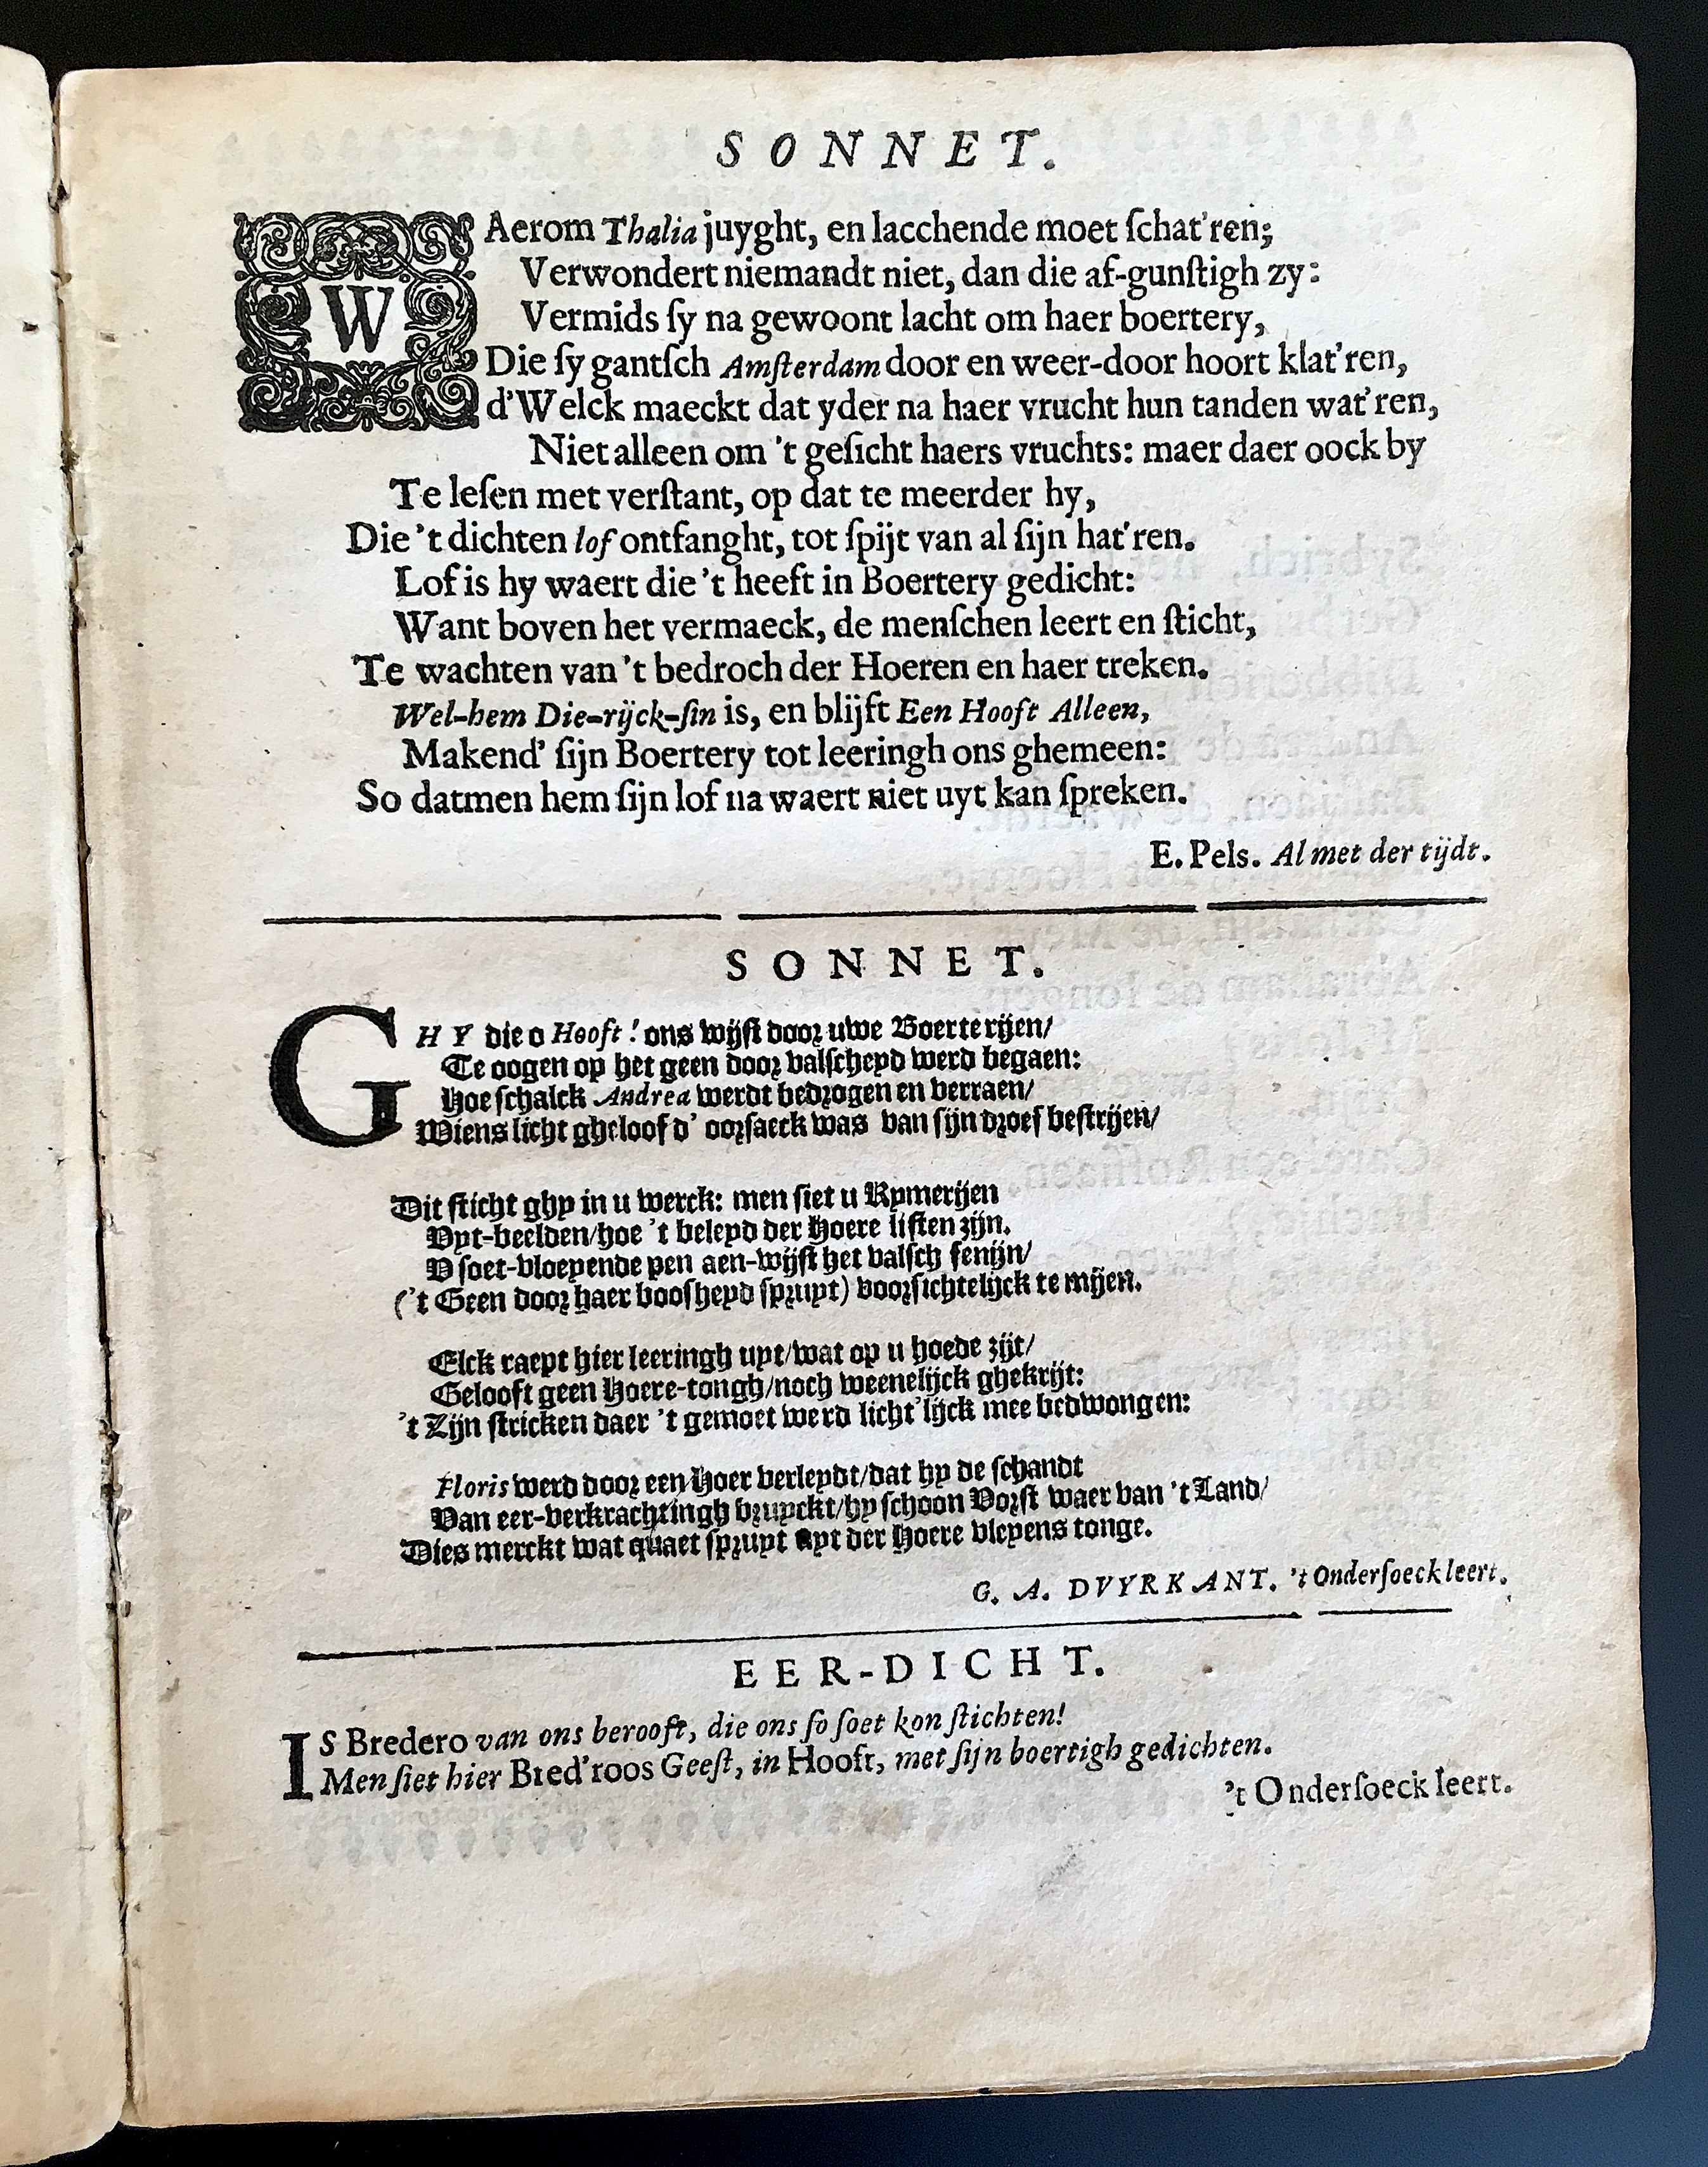 SONNET.
WAerom Thalia juyght, en lacchende moet ſchat'ren;
Verwondert niemandt niet, dan die af-gunſtigh zy:
Vermids ſy na gewoont lacht om haer boertery,
Die ſy gantſch Amſterdam door en weer-door hoort klat'ren,
d'Welck maeckt dat yder na haer vrucht hun tanden wat'ren,
Niet alleen om 't geſicht haers vruchts: maer daer oock by
Te leſen met verſtant, op dat te meerder hy,
Die 't dichten lof ontfanght, tot ſpijt van al ſijn hat'ren.
Lof is hy waert die 't heeft in Boertery gedicht:
Want boven het vermaeck, de menſchen leert en ſticht,
Te wachten van 't bedroch der Hoeren en haer treken.
Wel-hem Die-rijck-ſin is, en blijft Een Hooft Alleen,
Makend' ſijn Boertery tot leeringh ons ghemeen:
So datmen hem ſijn lof na waert niet uyt kan ſpreken.
E. Pels. Al met der tijdt.
SONNET.
GHY die o Hooft! ons wijſt door uwe Boerterijen/
Te oogen op het geen door valſcheyd werd begaen:
Hoe ſchalck Andrea werdt bedrogen en verraen/
Wiens licht gheloof d' oorſaeck was van ſijn droef beſtrijen/
Dit ſticht ghy in u werck: men ſiet u Rymerijen
Uyt-beelden/hoe 't beleyd der Hoere liſten zijn.
U ſoet-vloeyende pen aen-wijſt het valſch fenijn/
('t Geen door haer boosheyd ſpruyt) voorſichtelijck te mijen.
Elck raept hier leeringh uyt/wat op u hoede zijt/
Gelooft geen Hoere-tongh/noch weenelijck ghekrijt:
't Zijn ſtricken daer 't gemoet werd licht'lijck mee bedwongen:
Floris werd door een Hoer verleydt/dat hy de ſchandt
Van eer-verkrachtingh bruyckt/hy ſchoon Vorſt waer van 't Land/
Dies merckt wat quaet ſpruyt uyt der Hoere vleyens tonge.
G. A. DVYRKANT. 't Onderſoeck leert.
EER-DICHT.
IS Bredero van ons berooft, die ons ſo ſoet kon ſtichten!
Men ſiet hier Bred'roos Geeſt, in Hooft, met ſijn boertigh gedichten.
't Onderſoeck leert.